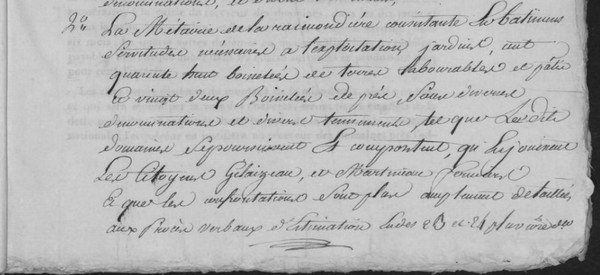 dénominations, et divers
2.o La Métairie de la raimondière consistante En batimens
Servitudes nécessaires a l'exploitation jardins, cent
quarente huit boisselées de terres labourables et patis
Et vingt deux Boisselées de prés, Sous diverses
dénominatures et divers tennements, tel que Lesdits
domaines Se poursuivent Et comportent, qu'En jouissent
Les Citoyens Gelaizeau, et Martineau fermiers
Et que les confrontations Sont plus amplement détaillées
aux Procès verbaux d'Estimation Ludes 20 et 21 pluviôse